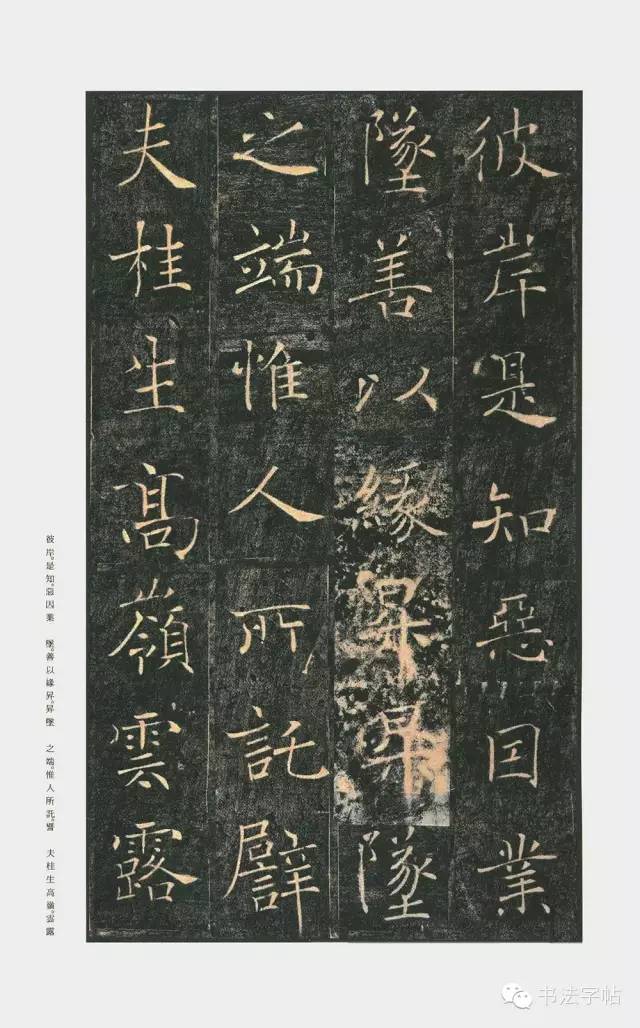 彼岸是知惡因業
墜善以緣昇昇墜
之端惟人所託譬
夫桂生高嶺雲露
彼岸。是知。惡因業　墜。善以緣昇。昇墜　之端。惟人所託。譬　夫桂生高嶺。雲露
书法字帖